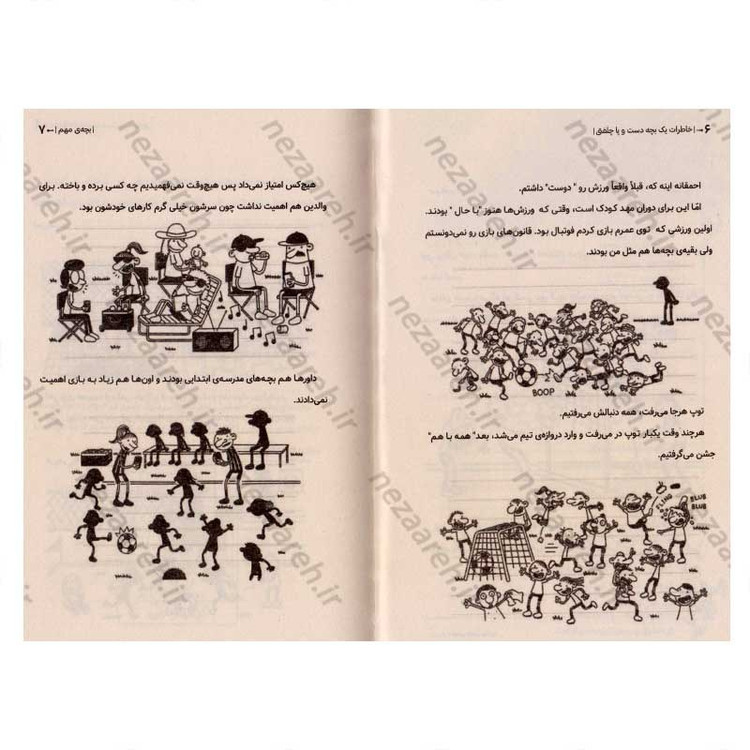 ۶ ← | خاطرات یک بچه دست و پا چلفتی |
احمقانه اینه که، قبلاً واقعاً ورزش رو " دوست" داشتم.
امّا این برای دوران مهد کودک است، وقتی که ورزش‌ها هنوز "با حال " بودند.
اولین ورزشی که توی عمرم بازی کردم فوتبال بود. قانون‌های بازی رو نمی‌دونستم
ولی بقیه‌ی بچه‌ها هم مثل من بودند.
BOOP
توپ هرجا می‌رفت، همه دنبالش می‌رفتیم.
هرچند وقت یکبار توپ در می‌رفت و وارد دروازه‌ی تیم می‌شد، بعد" همه با هم"
جشن می‌گرفتیم.
FLING
BLUB
BLUB
| بچه‌ی مهم | → ۷
هیچ‌کس امتیاز نمی‌داد پس هیچ‌وقت نمی‌فهمیدیم چه کسی برده و باخته. برای
والدین هم اهمیت نداشت چون سرشون خیلی گرم کارهای خودشون بود.
داورها هم بچه‌های مدرسه‌ی ابتدایی بودند و اون‌ها هم زیاد به بازی اهمیت
نمی‌دادند.
nezaareh.ir